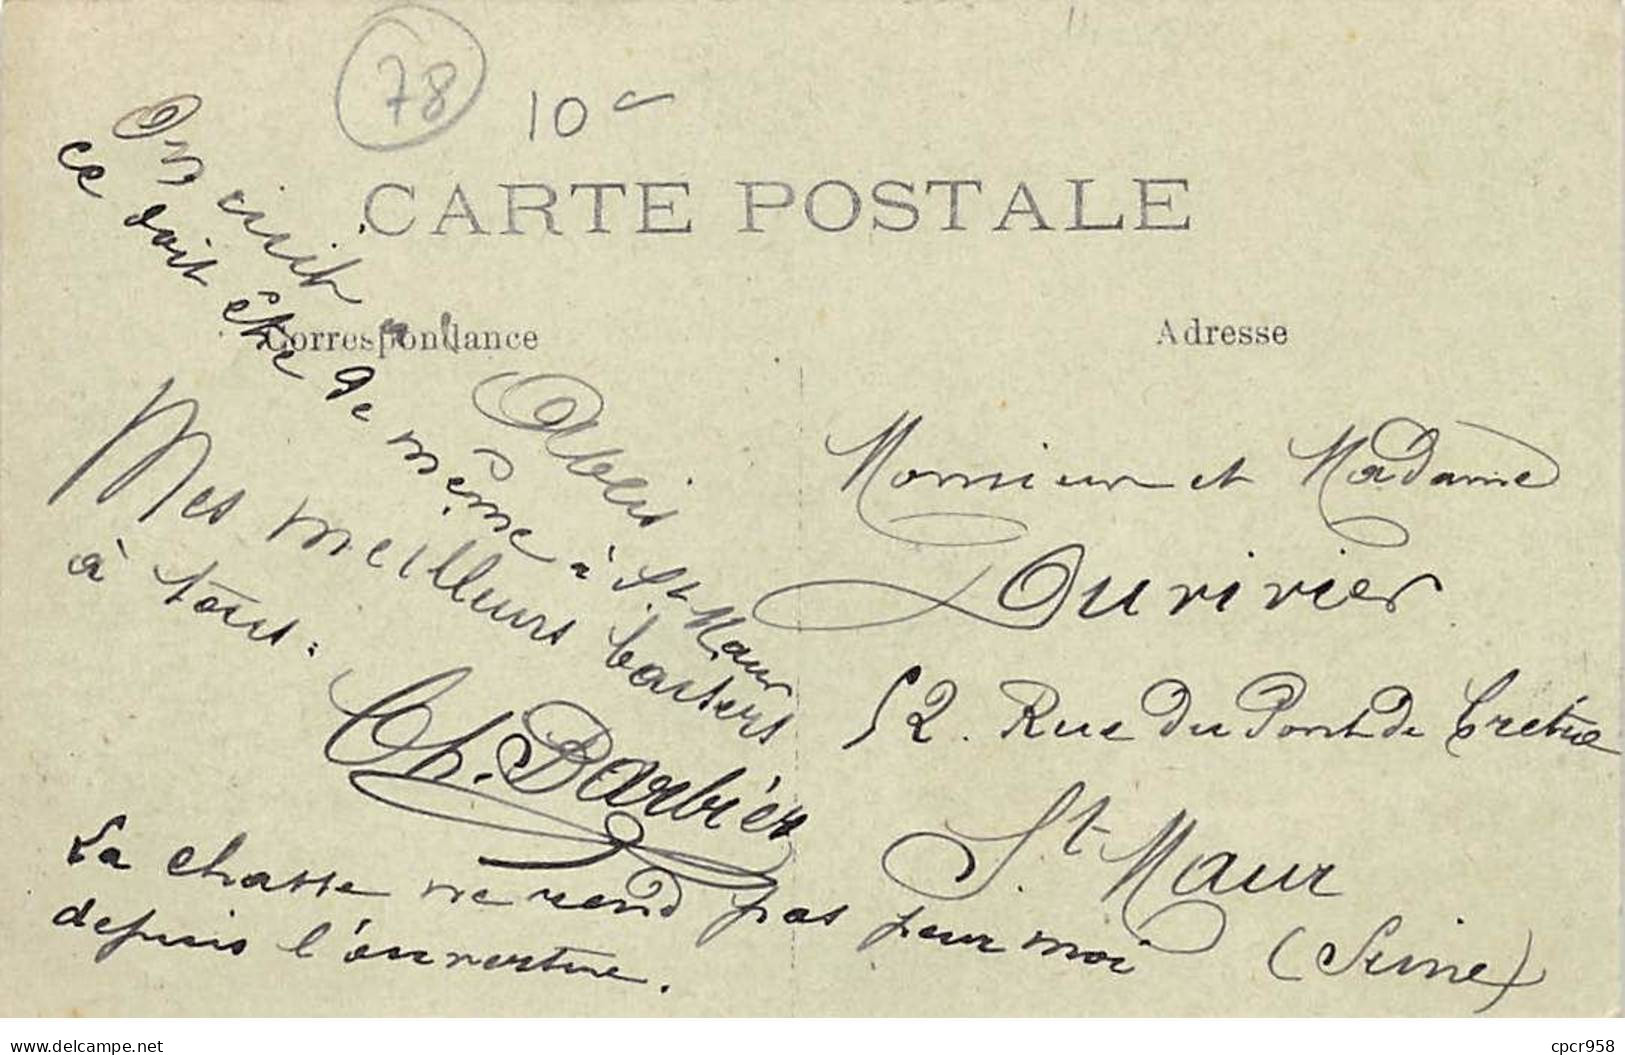 78
10 c
CARTE POSTALE
Correspondance
Adresse
On cuit à Ablis
ce doit être de même à St Maur
Mes meilleurs baisers
à tous.
Ch. Barbier
La chasse ne rend pas pour moi
depuis l'ouverture.
Monsieur et Madame
Duvivier
52. Rue du Pont de Créteil
St Maur
(Seine)
www.delcampe.net
cpcr958